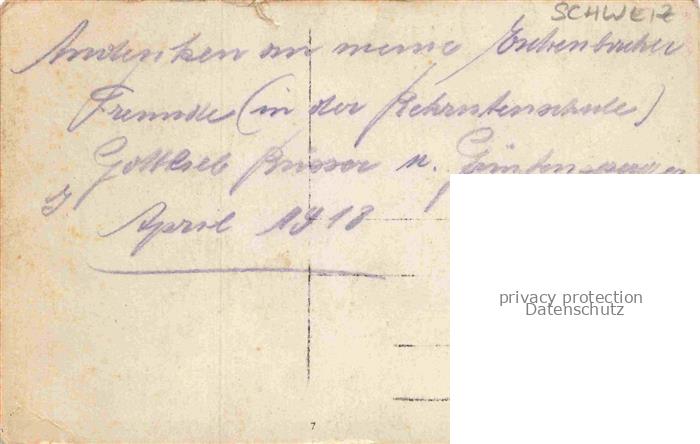 SCHWEIZ
Andenken an meine Eschenbacher
Freunde (in der Rekrutenschule)
Gottlieb Rüsser u.
April 1918
7
privacy protection
Datenschutz